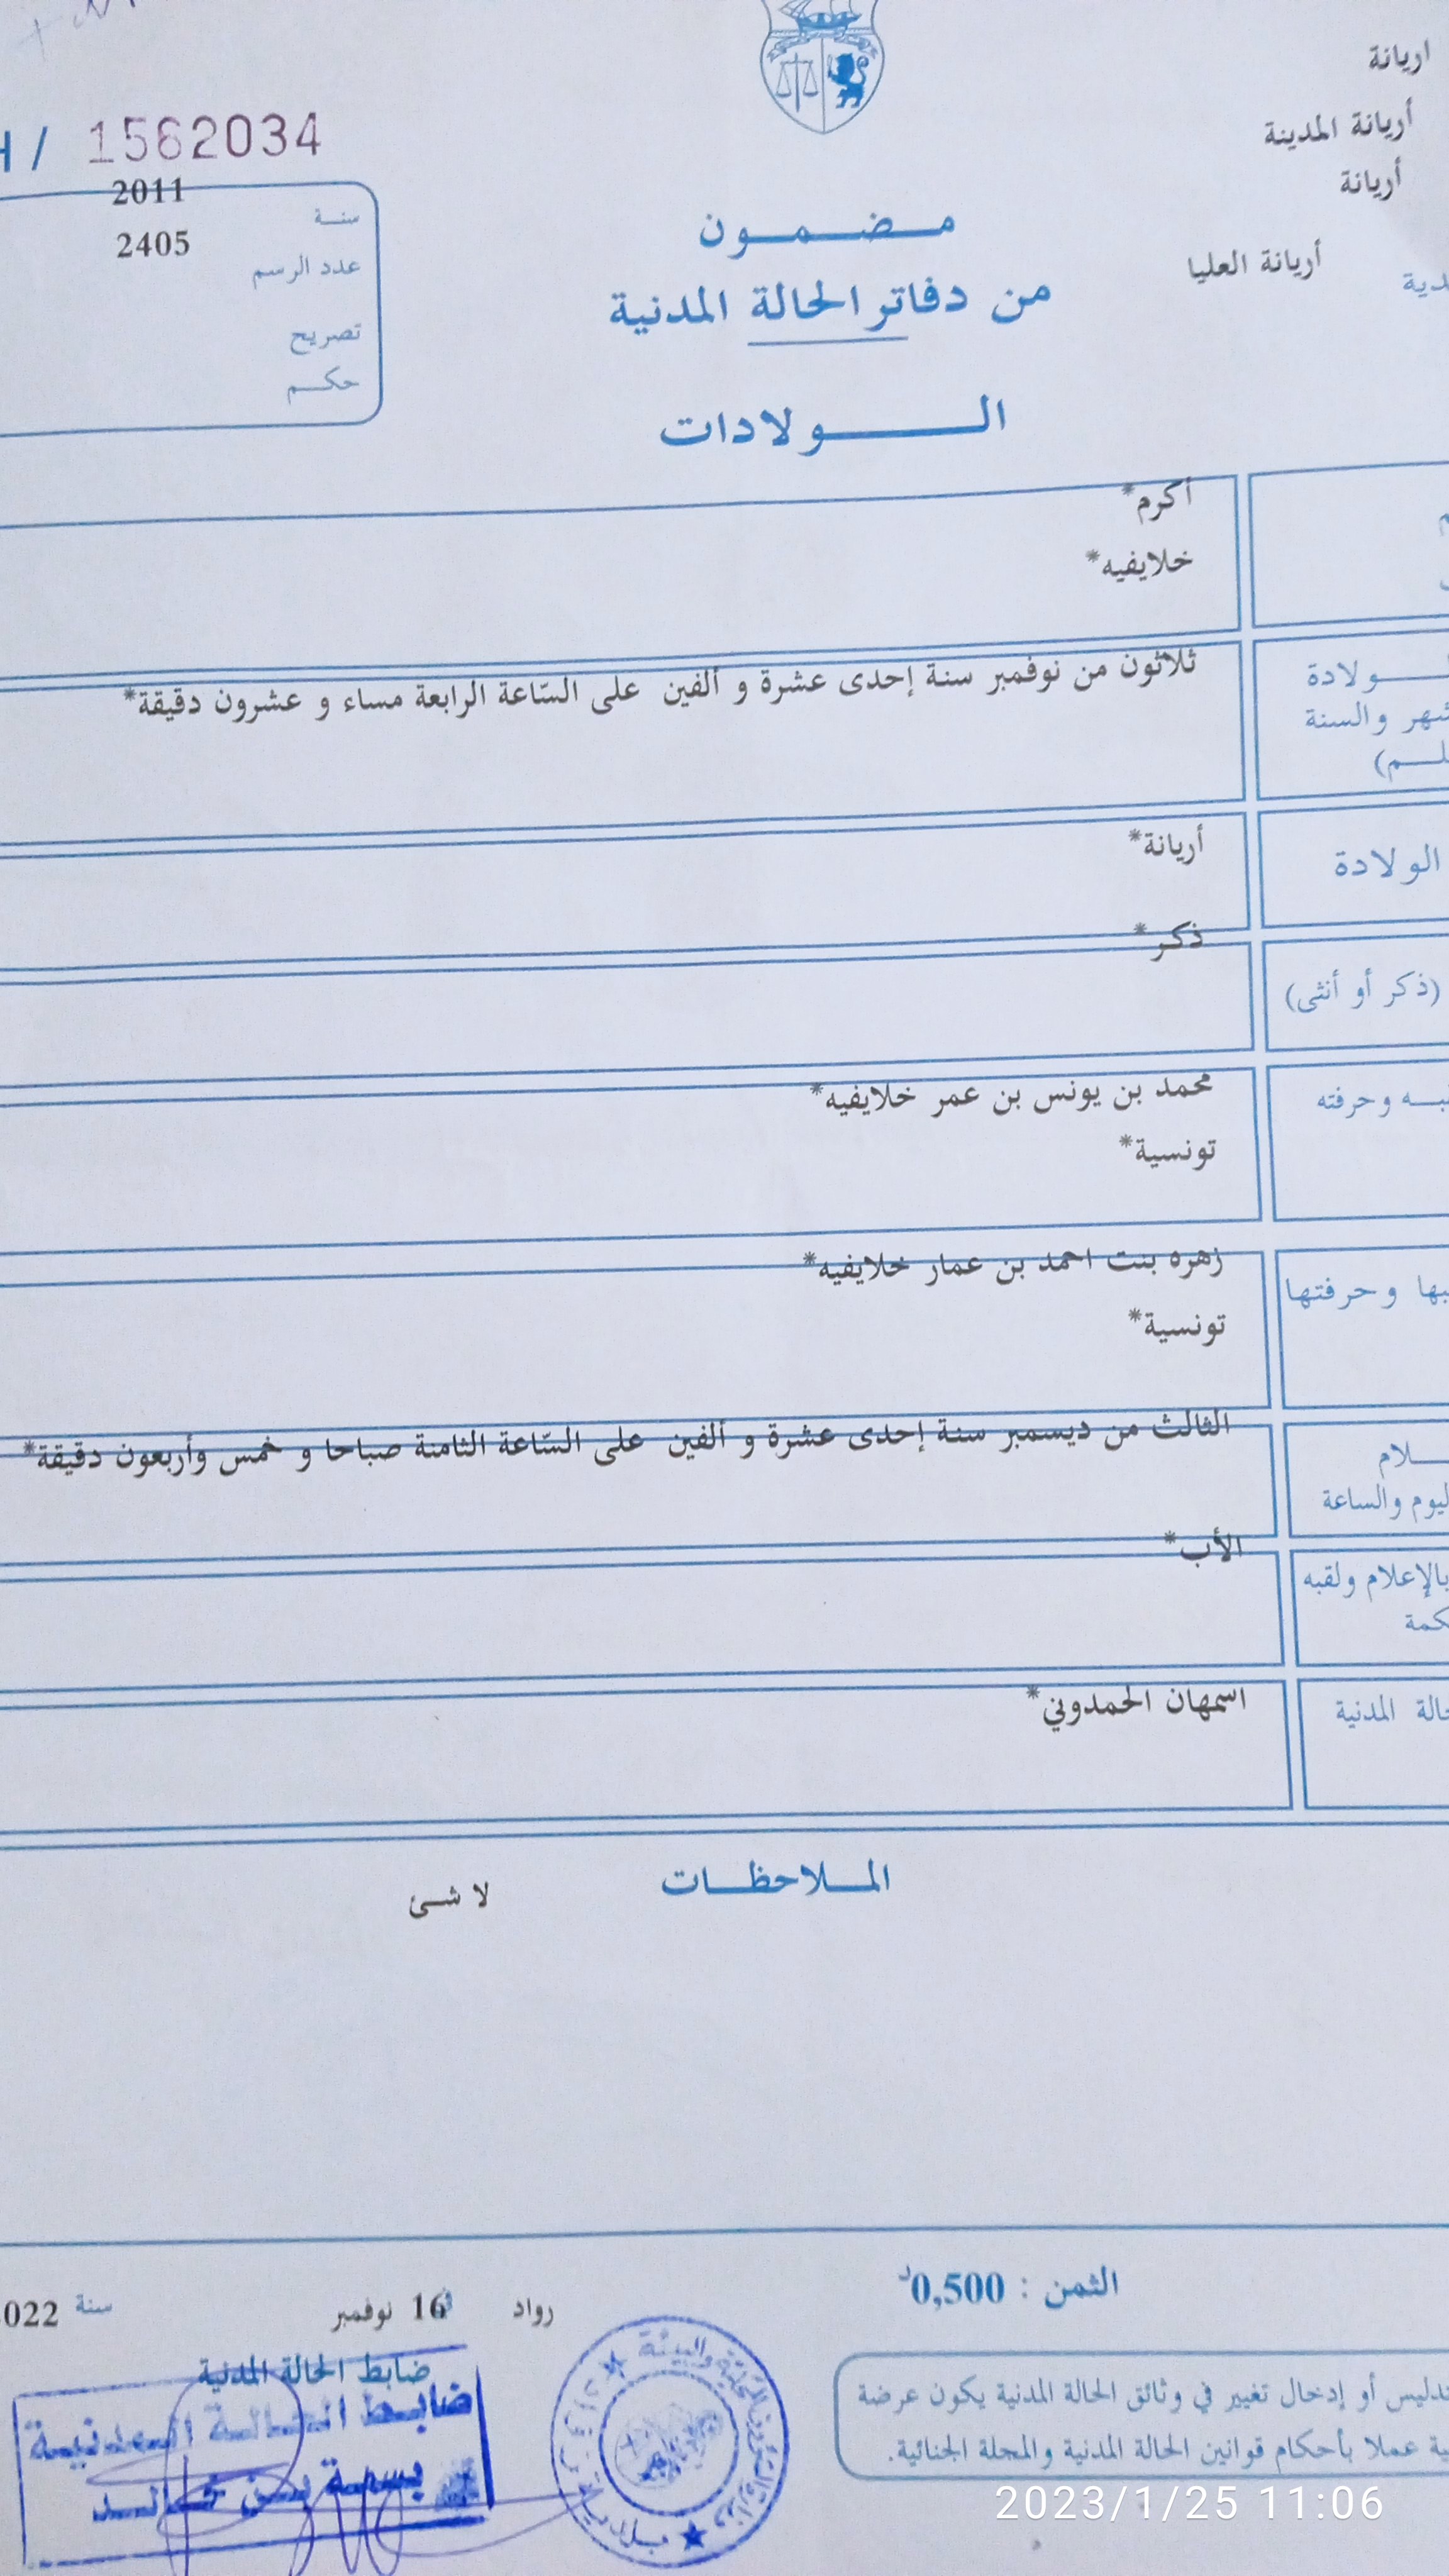 اريانة
أريانة المدينة
أريانة
أريانة العليا
/ 1562034
2011
سنة
2405
عدد الرسم
تصريح
حكم
مضمون
من دفاتر الحالة المدنية
الولادات
أكرم*
خلايفيه*
ولادة
والسنة
ثلاثون من نوفمبر سنة إحدى عشرة و ألفين على السّاعة الرابعة مساء و عشرون دقيقة*
الولادة
أريانة*
(ذكر أو أنثى)
ذكر*
وحرفته
محمد بن يونس بن عمر خلايفيه*
تونسية*
وحرفتها
زهره بنت احمد بن عمار خلايفيه*
تونسية*
والساعة
الثالث من ديسمبر سنة إحدى عشرة و ألفين على السّاعة الثامنة صباحا و خمس وأربعون دقيقة*
بالإعلام ولقبه
الأب*
المدنية
اسمهان الحمدوني*
الملاحظات
لا شئ
الثمن : 0,500د
رواد في 16 نوفمبر سنة 022
ضابط الحالة المدنية
ضابط الحالة المدنية
بسمة بن خالد
أو إدخال تغيير في وثائق الحالة المدنية يكون عرضة
عملا بأحكام قوانين الحالة المدنية والمجلة الجنائية.
2023/1/25 11:06